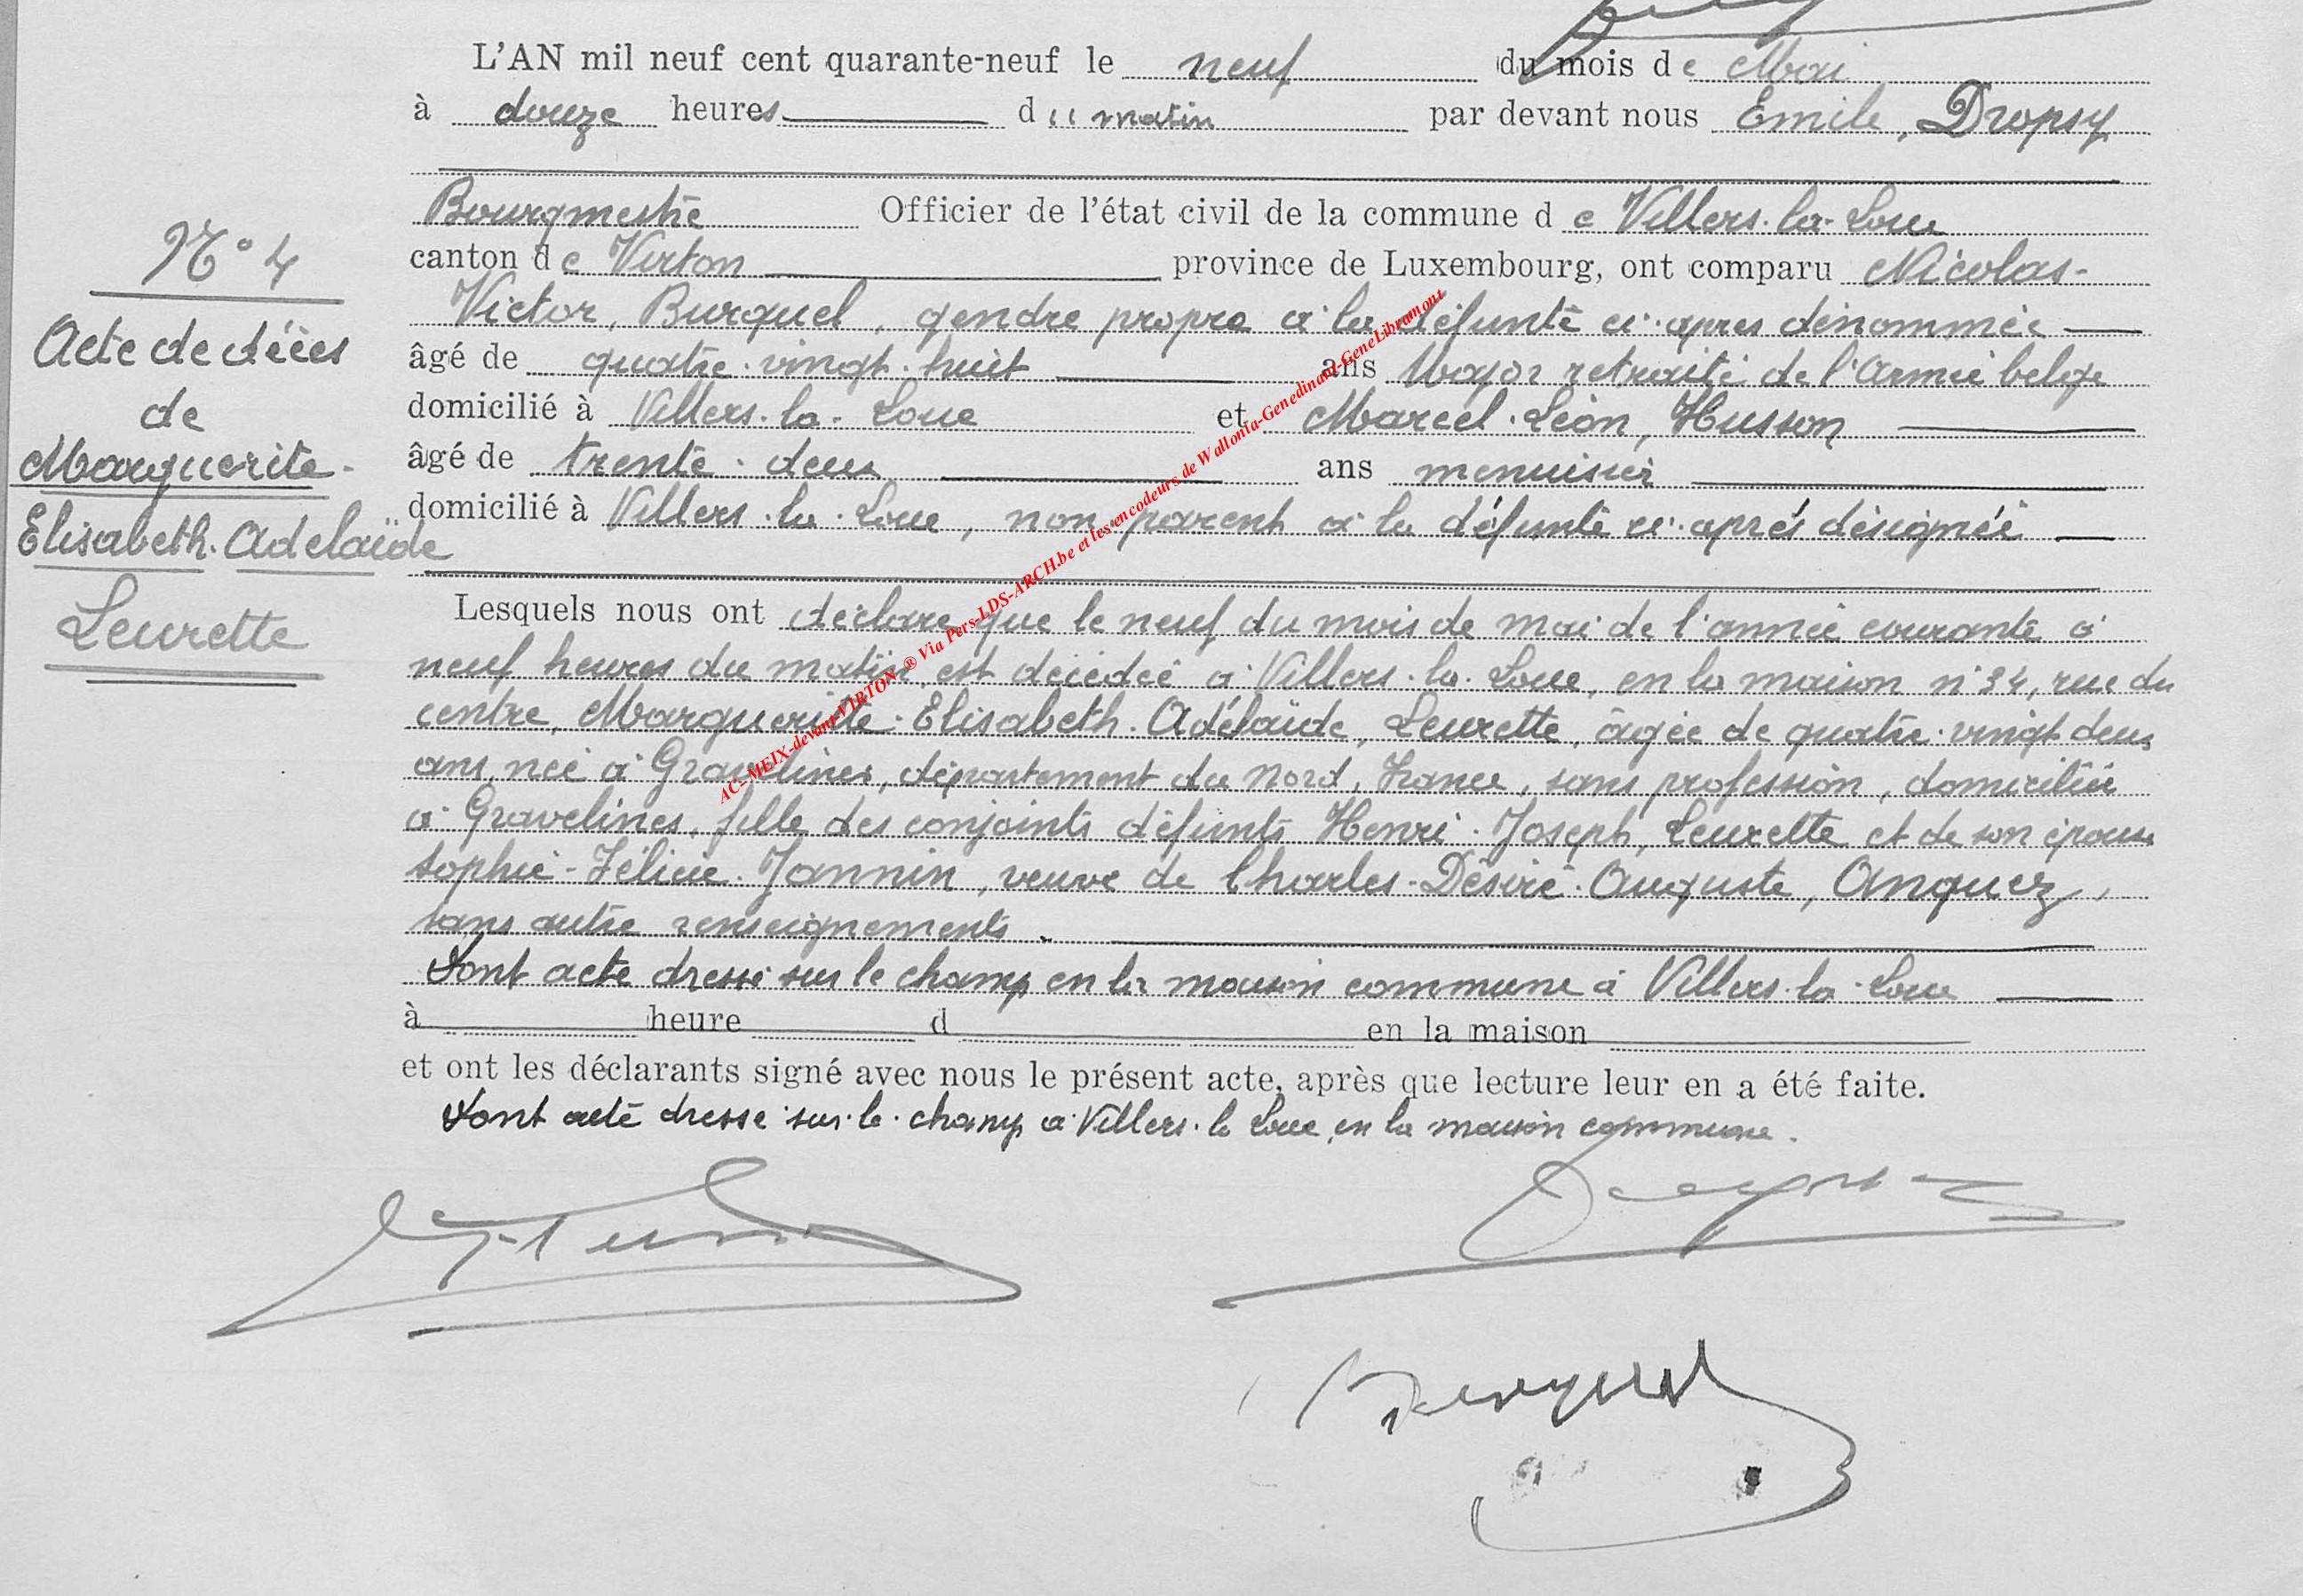 L'AN mil neuf cent quarante-neuf le neuf du mois de Mai
à douze heures du matin par devant nous Emile, Dropsy
Bourgmestre Officier de l'état civil de la commune de Villers-la-Loue
canton de Virton province de Luxembourg, ont comparu Nicolas-
Victor, Burquel, gendre propre à la défunte ci-après dénommée
âgé de quatre-vingt-huit ans Major retraité de l'Armée belge
domicilié à Villers-la-Loue et Marcel-Léon, Husson
âgé de trente-deux ans menuisier
domicilié à Villers-la-Loue, non parent à la défunte ci-après désignée
N° 4
Acte de décès
de
Marguerite-
Elisabeth-Adelaïde
Leurette
Lesquels nous ont déclare que le neuf du mois de mai de l'année courante à
neuf heures du matin est décédée à Villers-la-Loue, en la maison n°34, rue du
centre, Marguerite-Elisabeth-Adélaïde, Leurette, âgée de quatre-vingt deux
ans, née à Gravelines, département du Nord, France, sans profession, domiciliée
à Gravelines, fille des conjoints défunts Henri-Joseph, Leurette et de son épouse
Sophie-Félicie-Jannin, veuve de Charles-Désiré-Auguste, Anquez,
sans autre renseignements.
Dont acte dressé sur le champ en la maison commune à Villers-la-Loue
à heure d en la maison
et ont les déclarants signé avec nous le présent acte, après que lecture leur en a été faite.
Dont acte dressé sur-le-champ à Villers-la Loue, en la maison commune.
Burquel
AC-MEIX-devant-VIRTON ® Via Pers-LDS-ARCH.be et les encodeurs de Wallonia-Genedinant-GeneLibramont